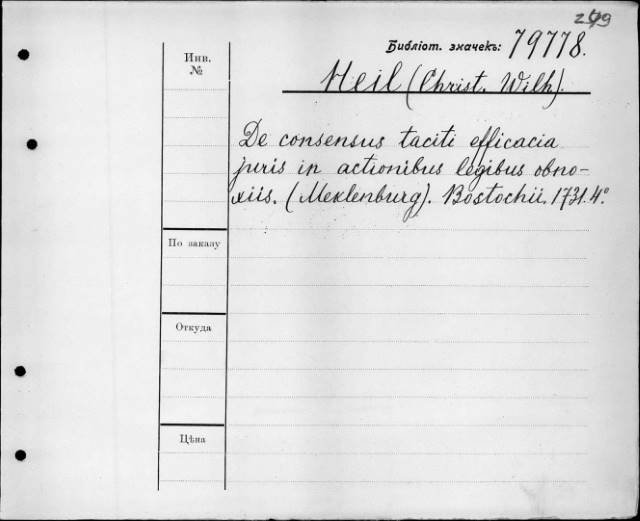 249
Библіот. значекъ: 79778.
Инв.
№
Heil (Christ. Wilh).
De consensus taciti efficacia
juris in actionibus legibus obno-
xiis. (Meklenburg). Bostochii. 1731. 4°.
По заказу
Откуда
Цѣна